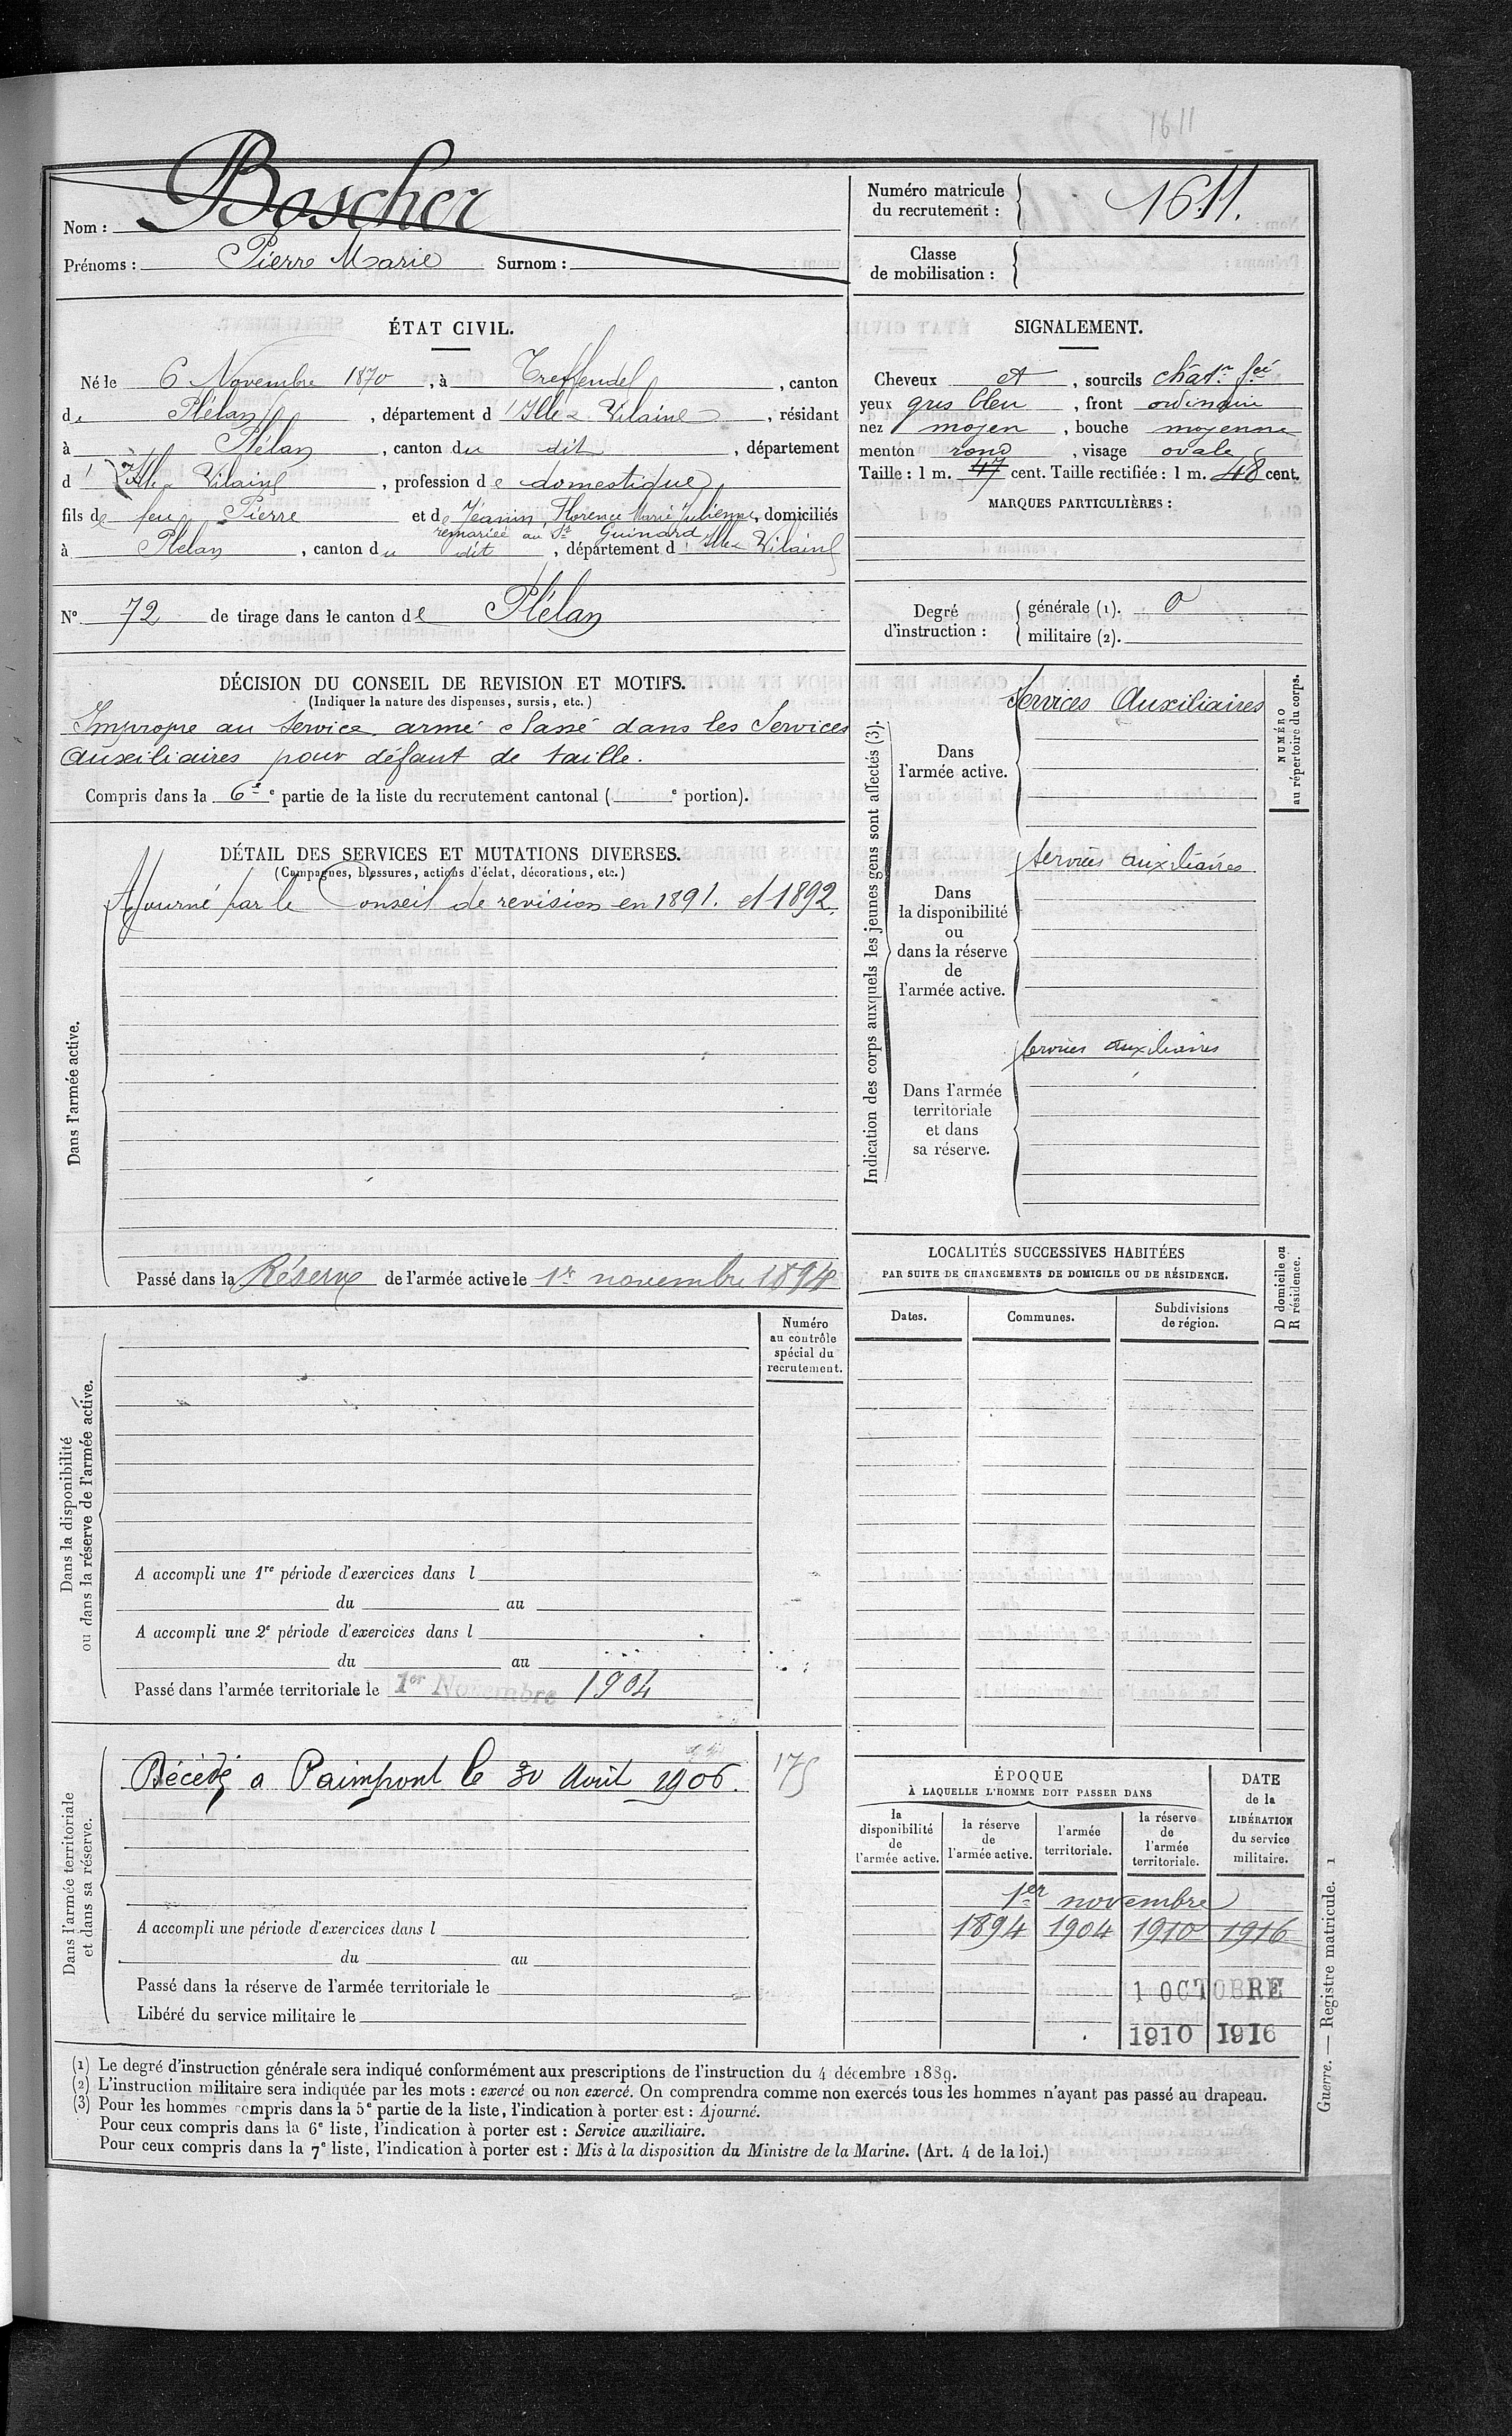 1611
Nom : Boscher
Prénoms : Pierre Marie Surnom :
Numéro matricule
du recrutement : 1611.
Classe
de mobilisation :
ÉTAT CIVIL.
Né le 6 Novembre 1870, à Treffendel, canton
de Plélan, département d'Ille & Vilaine, résidant
à Plélan, canton du dit, département
d'Ille & Vilaine, profession de domestique
fils de feu Pierre et de Jeanin, Florence Marie Julienne, domiciliés
remariée au Sr Guinard
à Plélan, canton du dit, département d'Ille & Vilaine
No 72 de tirage dans le canton de Plélan
SIGNALEMENT.
Cheveux et, sourcils chât.n f.cé
yeux gris bleu, front ordinaire
nez moyen, bouche moyenne
menton rond, visage ovale
Taille : 1 m. 47 cent. Taille rectifiée : 1 m. 48 cent.
MARQUES PARTICULIÈRES :
Degré
d'instruction :
générale (1). 0
militaire (2).
DÉCISION DU CONSEIL DE REVISION ET MOTIFS.
(Indiquer la nature des dispenses, sursis, etc.)
Impropre au service armé classé dans les Services
Auxiliaires pour défaut de taille.
Compris dans la 6e e partie de la liste du recrutement cantonal ( e portion).
DÉTAIL DES SERVICES ET MUTATIONS DIVERSES.
(Campagnes, blessures, actions d'éclat, décorations, etc.)
Dans l'armée active.
Ajourné par le Conseil de revision en 1891. et 1892.
Passé dans la Réserve de l'armée active le 1er novembre 1894
Indication des corps auxquels les jeunes gens sont affectés (3).
Dans
l'armée active.
Services Auxiliaires
NUMÉRO
au répertoire du corps.
Dans
la disponibilité
ou
dans la réserve
de
l'armée active.
Services auxiliaires
Dans l'armée
territoriale
et dans
sa réserve.
Services auxiliaires
LOCALITÉS SUCCESSIVES HABITÉES
PAR SUITE DE CHANGEMENTS DE DOMICILE OU DE RÉSIDENCE.
D domicile ou
R résidence.
Dates.
Communes.
Subdivisions
de région.
Dans la disponibilité
ou dans la réserve de l'armée active.
Numéro
au contrôle
spécial du
recrutement.
A accompli une 1re période d'exercices dans l
du au
A accompli une 2e période d'exercices dans l
du au
Passé dans l'armée territoriale le 1er Novembre 1904
Dans l'armée territoriale
et dans sa réserve.
Décédé a Paimpont le 30 Août 1906.
175
A accompli une période d'exercices dans l
du au
Passé dans la réserve de l'armée territoriale le
Libéré du service militaire le
ÉPOQUE
À LAQUELLE L'HOMME DOIT PASSER DANS
DATE
de la
LIBÉRATION
du service
militaire.
la
disponibilité
de
l'armée active.
la réserve
de
l'armée active.
l'armée
territoriale.
la réserve
de
l'armée
territoriale.
1er novembre
1894 1904 1910 1916
1 OCTOBRE
1910 1916
(1) Le degré d'instruction générale sera indiqué conformément aux prescriptions de l'instruction du 4 décembre 1889.
(2) L'instruction militaire sera indiquée par les mots : exercé ou non exercé. On comprendra comme non exercés tous les hommes n'ayant pas passé au drapeau.
(3) Pour les hommes compris dans la 5e partie de la liste, l'indication à porter est : Ajourné.
Pour ceux compris dans la 6e liste, l'indication à porter est : Service auxiliaire.
Pour ceux compris dans la 7e liste, l'indication à porter est : Mis à la disposition du Ministre de la Marine. (Art. 4 de la loi.)
Guerre. — Registre matricule. 1